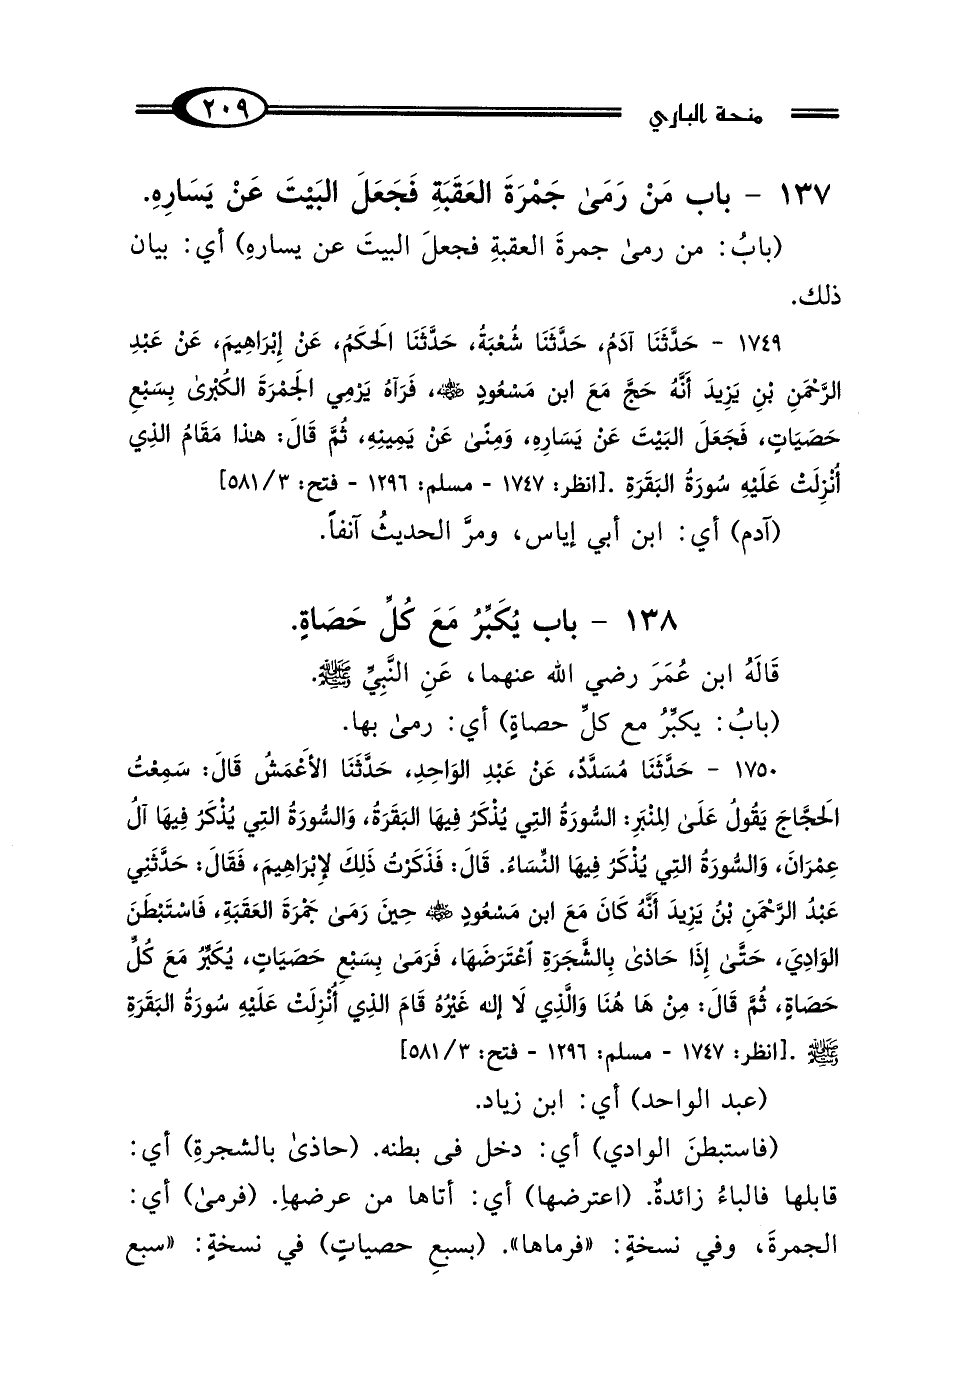 منحة الباري
٢٠٩
١٣٧ - باب مَنْ رَمَىٰ جَمْرَةَ العَقَبَةِ فَجَعَلَ البَيْتَ عَنْ يَسَارِهِ.
(بابُ: من رمىٰ جمرةَ العقبةِ فجعلَ البيتَ عن يسارهِ) أي: بيان
ذلك.
١٧٤٩ - حَدَّثَنَا آدَمُ، حَدَّثَنَا شُعْبَةُ، حَدَّثَنَا الَحكَمُ، عَنْ إِبْرَاهِيمَ، عَنْ عَبْدِ
الرَّحْمَنِ بْنِ يَزِيدَ أَنَّهُ حَجَّ مَعَ ابن مَسْعُودٍ ﵁، فَرَآهُ يَرْمِي الَجمْرَةَ الكُبْرىٰ بِسَبْعِ
حَصَيَاتٍ، فَجَعَلَ البَيْتَ عَنْ يَسَارِهِ، وَمِنًىٰ عَنْ يَمِينِهِ، ثُمَّ قَالَ: هٰذا مَقَامُ الذِي
أُنْزِلَتْ عَلَيْهِ سُورَةُ البَقَرَةِ .[انظر: ١٧٤٧ - مسلم: ١٢٩٦ - فتح: ٣/ ٥٨١]
(آدم) أي: ابن أبي إياس، ومرَّ الحديثُ آنفاً.
١٣٨ - باب يُكَبِّرُ مَعَ كُلِّ حَصَاةٍ.
قَالَهُ ابن عُمَرَ رضي الله عنهما، عَنِ النَّبِيِّ ﷺ.
(بابُ: يكبِّرُ مع كلِّ حصاةٍ) أي: رمىٰ بها.
١٧٥٠ - حَدَّثَنَا مُسَدَّدٌ، عَنْ عَبْدِ الوَاحِدِ، حَدَّثَنَا الأَعْمَشُ قَالَ: سَمِعْتُ
الَحجَّاجَ يَقُولُ عَلَىٰ المِنْبَرِ: السُّورَةُ التِي يُذْكَرُ فِيهَا البَقَرَةُ، وَالسُّورَةُ التِي يُذْكَرُ فِيهَا آلُ
عِمْرَانَ، وَالسُّورَةُ التِي يُذْكَرُ فِيهَا النِّسَاءُ. قَالَ: فَذَكَرْتُ ذَلِكَ لِإِبْرَاهِيمَ، فَقَالَ: حَدَّثَنِي
عَبْدُ الرَّحْمَنِ بْنُ يَزِيدَ أَنَّهُ كَانَ مَعَ ابن مَسْعُودٍ ﵁ حِينَ رَمَىٰ جَمْرَةَ العَقَبَةِ، فَاسْتَبْطَنَ
الوَادِيَ، حَتَّىٰ إِذَا حَاذىٰ بِالشَّجَرَةِ اَعْتَرَضَهَا، فَرَمَىٰ بِسَبْعِ حَصَيَاتٍ، يُكَبِّرُ مَعَ كُلِّ
حَصَاةٍ، ثُمَّ قَالَ: مِنْ هَا هُنَا وَالَّذِي لَا إلٰه غَيْرُهُ قَامَ الذِي أُنْزِلَتْ عَلَيْهِ سُورَةُ البَقَرَةِ
ﷺ .[انظر: ١٧٤٧ - مسلم: ١٢٩٦ - فتح: ٣/ ٥٨١]
(عبد الواحد) أي: ابن زياد.
(فاستبطنَ الوادي) أي: دخل فى بطنه. (حاذىٰ بالشجرةِ) أي:
قابلها فالباءُ زائدةٌ. (اعترضها) أي: أتاها من عرضهاِ. (فرمىٰ) أي:
الجمرةَ، وفي نسخةٍ: «فرماها». (بسبعِ حصياتٍ) في نسخةٍ: «سبع